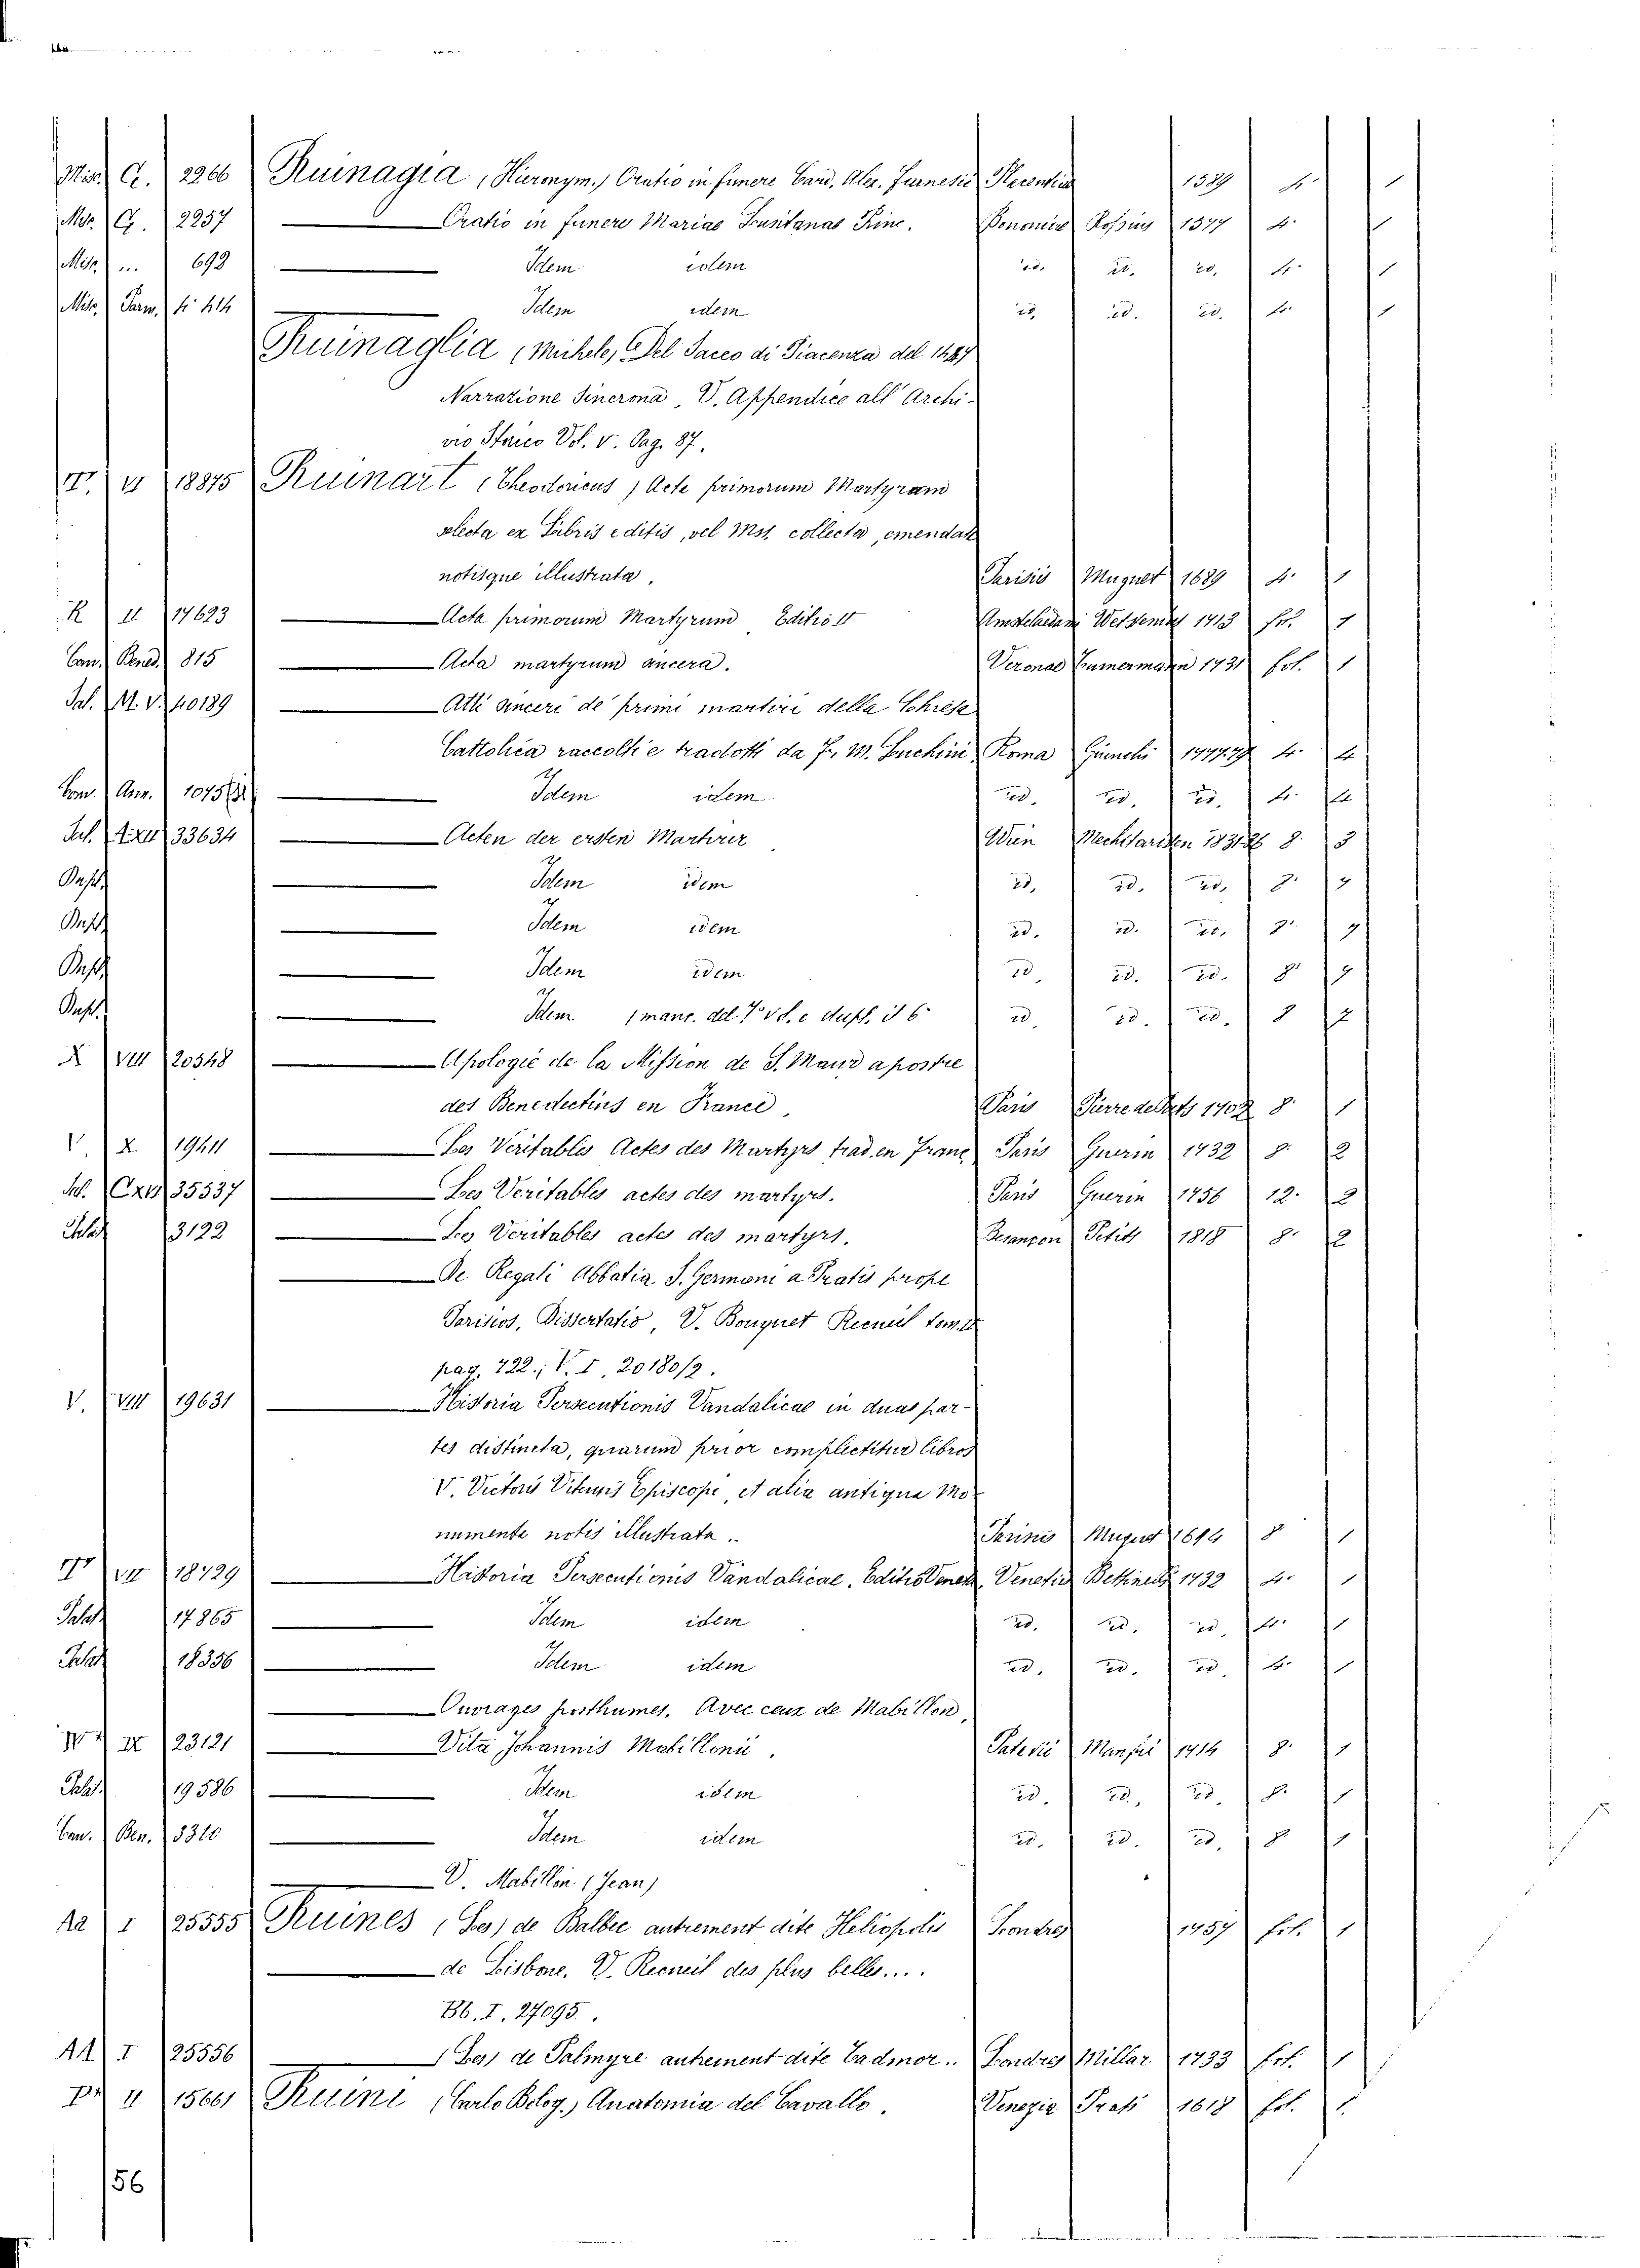 Misc. G. 2266 Ruinagia (Hieronym.) Oratio in funere Card. Alex. Farnesii Placentiae 1589 4. 1
Misc. G. 2257 Oratio in funere Mariae Lusitanae Princ. Bononiae Rossius 1577 4. 1
Misc. ... 692 Idem idem id. id. id. 4. 1
Misc. Parm. 4° 414 Idem idem id. id. id. 4. 1
Ruinaglia (Michele) Del Sacco di Piacenza del 1447
Narrazione Sincrona, V. Appendice all'Archi-
vio Storico Vol. V. Pag. 87.
VI 18875 Ruinart (Theodoricus) Acta primorum Martyrum
selecta ex Libris editis, vel Mss. collecta, emendata
notisque illustrata. Parisiis Muguet 1689 4. 1
R II 17623 Acta primorum Martyrum Editio II Amstelaedami Wetstenius 1713 fol. 1
Can. Bened. 815 Acta martyrum sincera. Veronae Tumermann 1731 fol. 1
Sal. M. V. 40189 Atti sinceri de' primi martiri della Chiesa
Cattolica raccolti e tradotti da F. M. Luchini Roma 1777.79 4. 4
Com. Ann. 1075 Idem idem id. id. id. 4. 4
Sal. 33634 Acten der ersten Martyrer Wien Mechitaristen 1831.36 8. 3
Idem idem id. id. id. 8.
Idem idem id. id. id. 8.
Idem idem id. id. id. 8.
Idem (manc. del T° V d. e dupl. il 6° id. id. id. 8
X VIII 20348 Apologie de la Mission de S. Maur apostre
des Benedectins en France, Paris Pierre de Bats 1702 8. 1
V. X. 19411 Les Veritables Actes des Martyrs trad. en Franc. Paris Guerin 1732 8. 2
Sal. 35537 Les Veritables actes des martyrs. Paris Guerin 1756 12. 2
Palat. 3122 Les Veritables actes des martyrs. Besançon Petit 1818 8. 2
De Regali Abbatia S. Germani a Pratis prope
Parisios, Dissertatio, V. Bouquet Recueil tom. II
pag. 722.; V. I. 20180/2.
V. VIII 19631 Historia Persecutionis Vandalicae in duas par-
tes distincta, quarum prior complectitur libros
V. Victoris Vitensis Episcopi, et alia antiqua Mo-
numenta notis illustrata. Parisiis Muguet 1694 8 1
VII 18729 Historia Persecutionis Vandalicae. Editio Veneta. Venetiis Bettinelli 1732 4. 1
Palat. 17865 Idem idem id. id. id. 4. 1
Palat. 18336 Idem idem id. id. id. 4. 1
Ouvrages posthumes. Avec ceux de Mabillon,
IX 23121 Vita Johannis Mabillonii. Patavii Manfrè 1714 8. 1
Palat. 19586 Idem idem id. id. id. 8. 1
Can. Ben. 3310 Idem idem id. id. id. 8 1
V. Mabillon (Jean)
Aa I 25555 Ruines (Les) de Balbec autrement dite Heliopolis Londres 1757 fol. 1
de Lisbone. V. Recueil des plus belles....
Bb. I. 27095.
AA I 25556 (Les) de Palmyre autrement dite Tadmor.. Londres Millar 1753 fol. 1
II 15661 Ruini (Carlo Bolog.) Anatomia del Cavallo. Venezia Prati 1618 fol. 1.
156